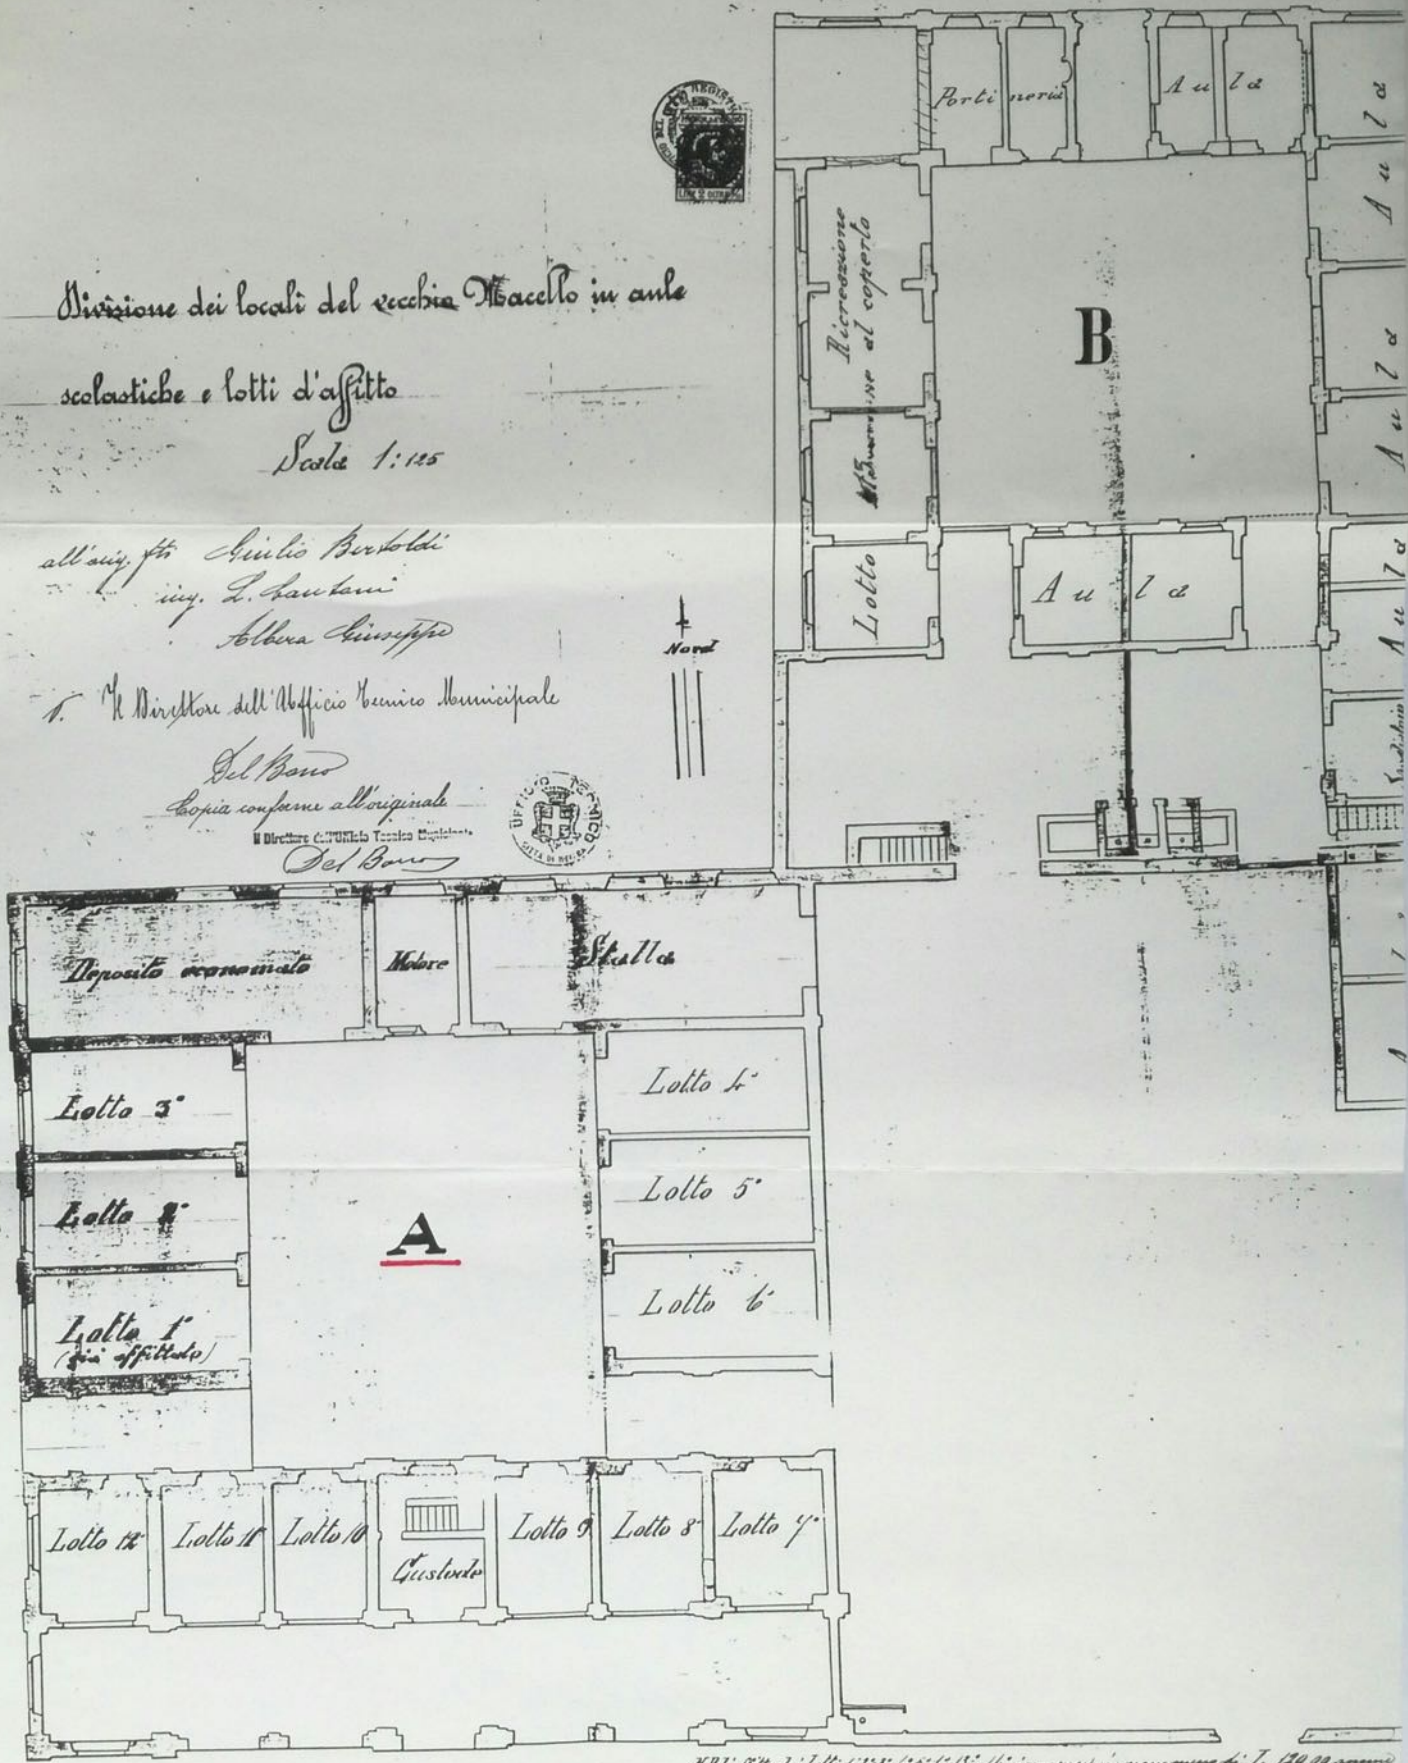 Divisione dei locali del vecchio Macello in aule
scolastiche e lotti d'affitto
Scala 1:125
all'orig. fti Giulio Bertoldi
ing. L. Cantoni
Albera Giuseppe
Il Direttore dell'Ufficio Tecnico Municipale
Del Bono
Copia conforme all'originale
Il Direttore dell'Ufficio Tecnico Municipale
Del Bono
UFFICIO TECNICO
Nord
Portineria
Aula
Aula
Aula
Aula
Aula
Aula
Ricreazione
al coperto
B
Lotto
Deposito economato
Motore
Stalla
Lotto 3°
Lotto 2°
Lotto 1°
(già affittato)
A
Lotto 4°
Lotto 5°
Lotto 6°
Lotto 12°
Lotto 11°
Lotto 10
Custode
Lotto 9°
Lotto 8°
Lotto 7°